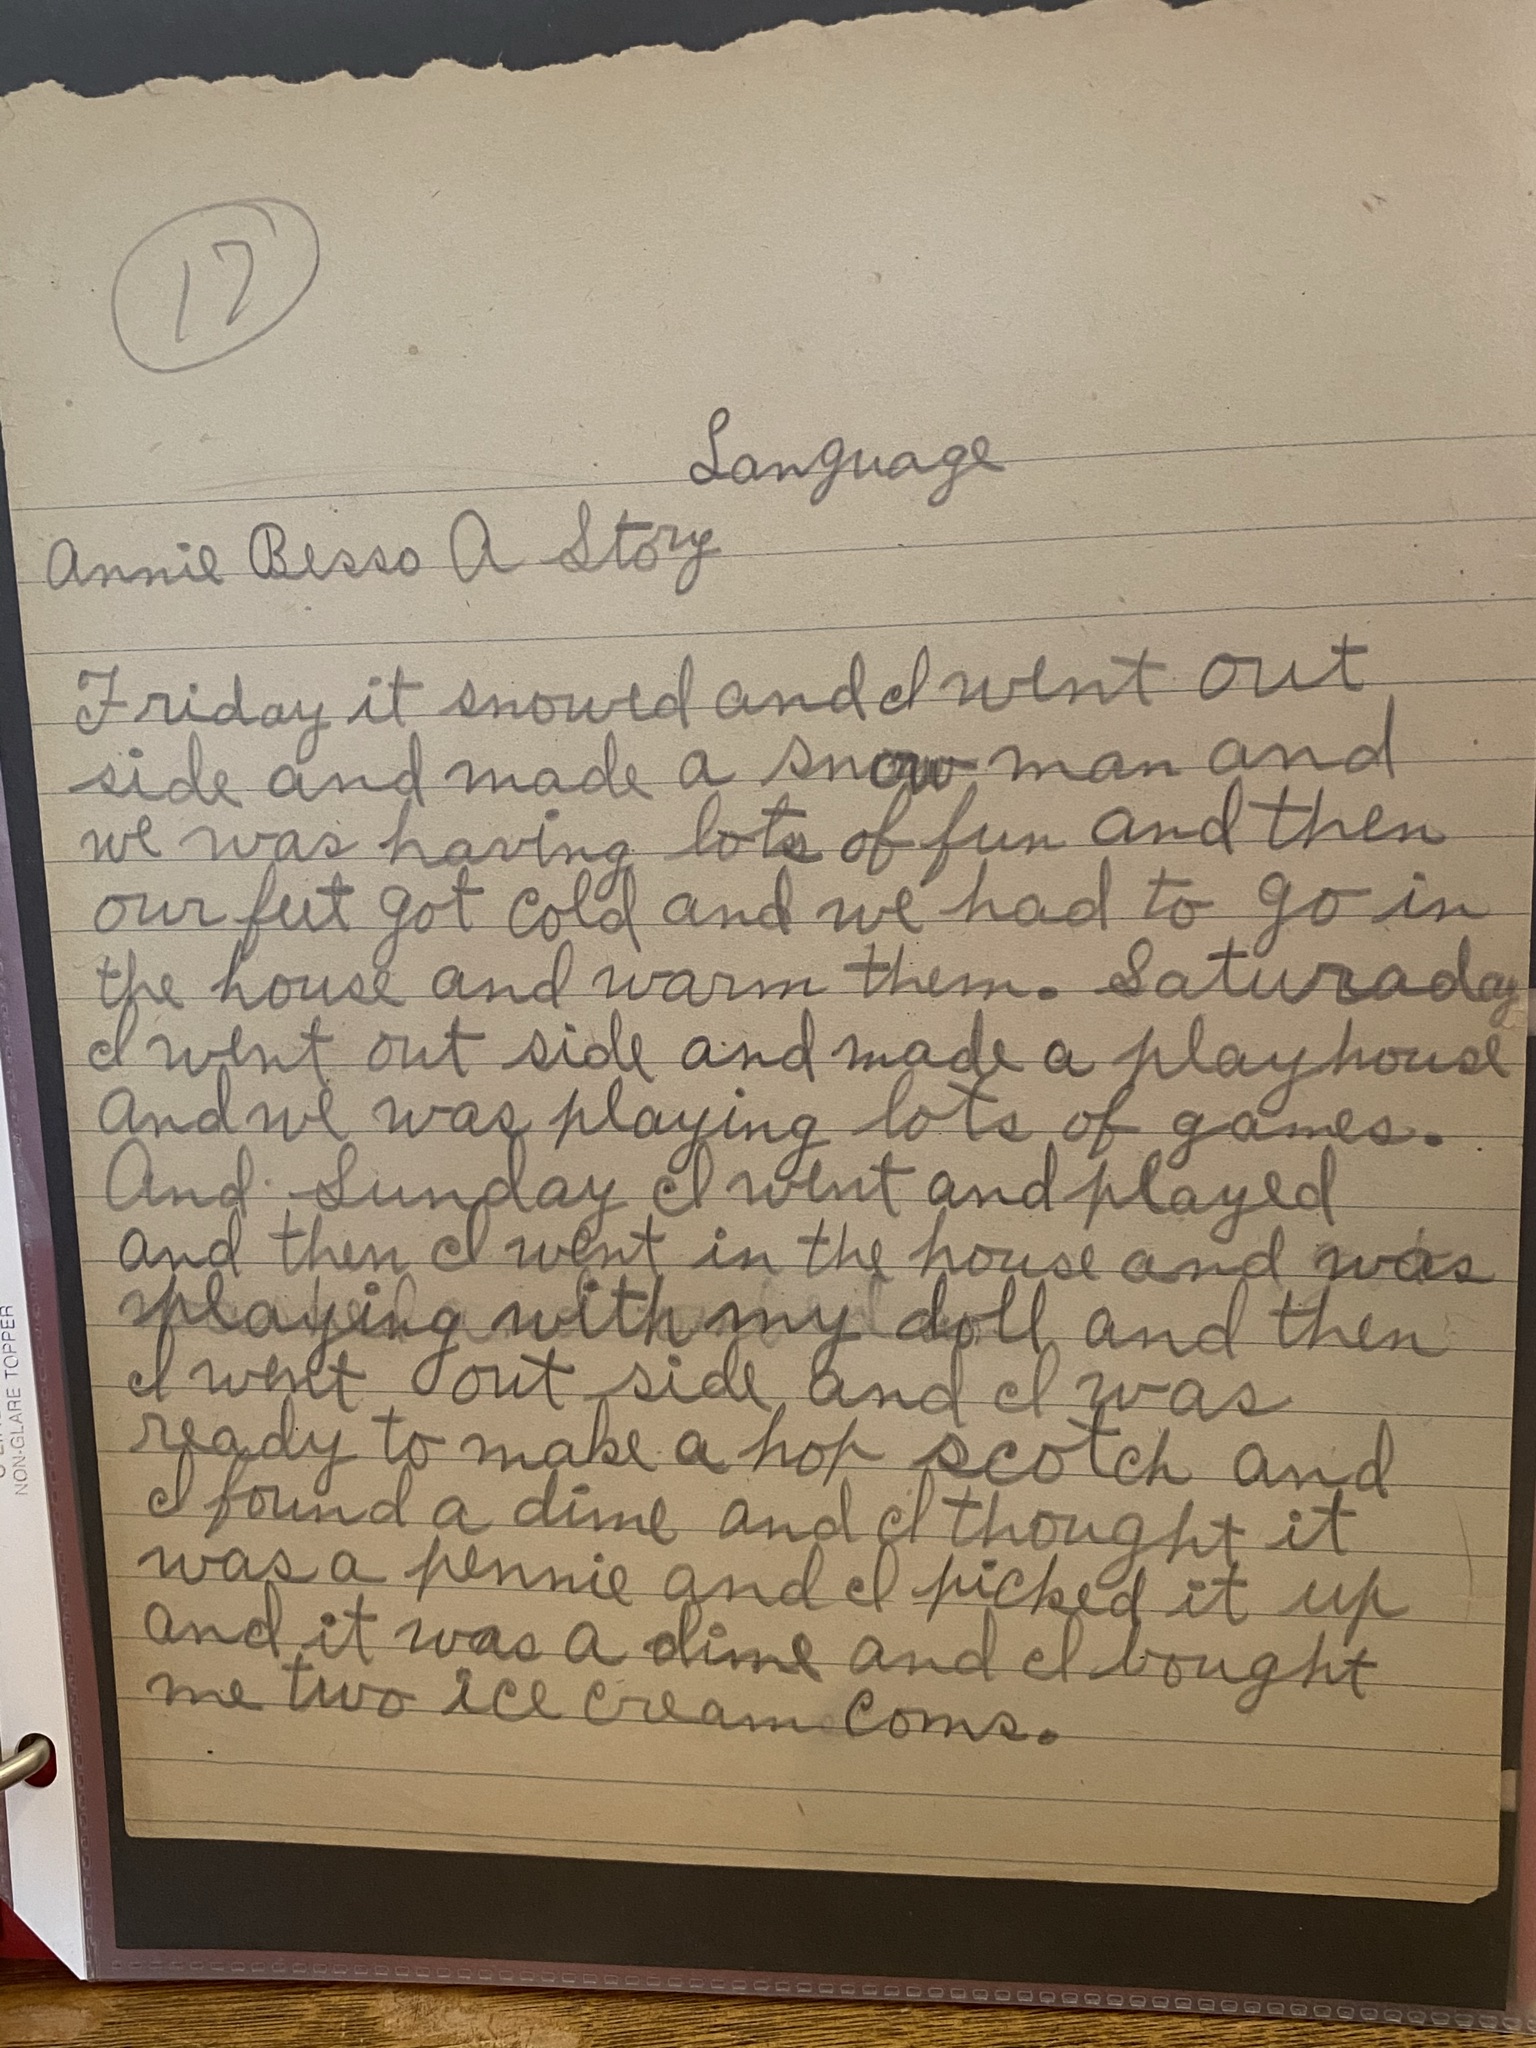 17
Language
Annie Besso A Story
Friday it snowed and I went out
side and made a snow man and
we was having lots of fun and then
our feet got cold and we had to go in
the house and warm them. Saturaday
I went out side and made a play house
and we was playing lots of games.
And Sunday I went and played
and then I went in the house and was
playing with my doll and then
I went out side and I was
ready to make a hop scotch and
I found a dime and I thought it
was a pennie and I picked it up
and it was a dime and I bought
me two ice cream coms.
NON-GLARE TOPPER